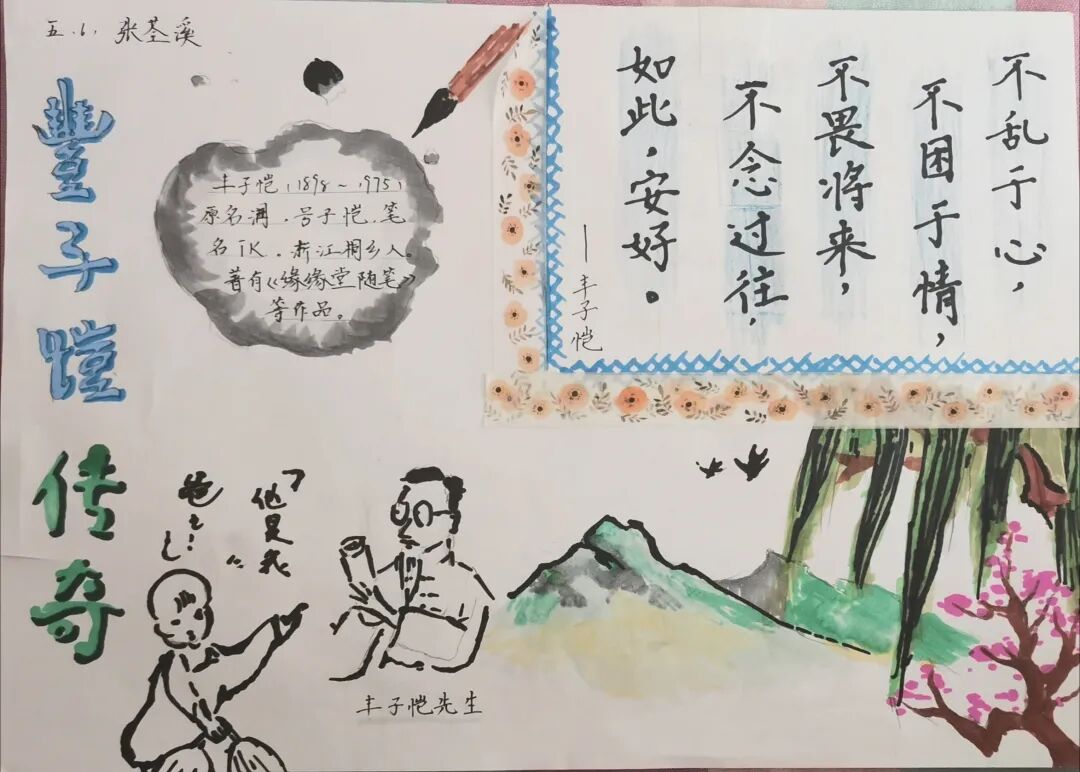 五.6. 张荃溪
豐子愷传奇
丰子恺,(1898~1975)
原名润,号子恺,笔
名TK,浙江桐乡人。
著有《缘缘堂随笔》
等作品。
不乱于心,
不困于情,
不畏将来,
不念过往,
如此,安好。
——丰子恺
“他是我
爸々!”
丰子恺先生